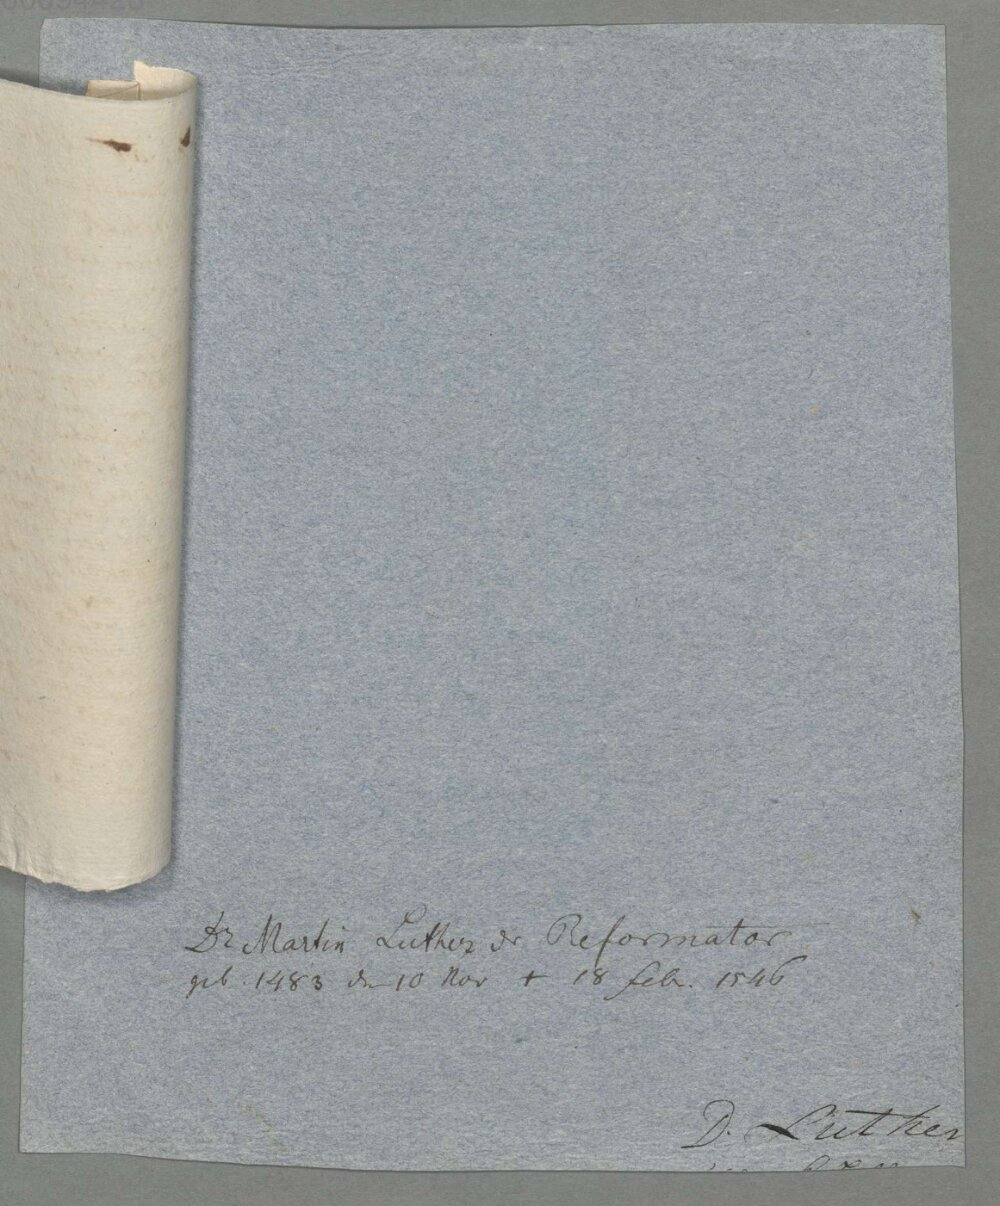 Dr Martin Luther dr Reformator
geb. 1483 den 10 Nov + 18 feb. 1546
D. Luther